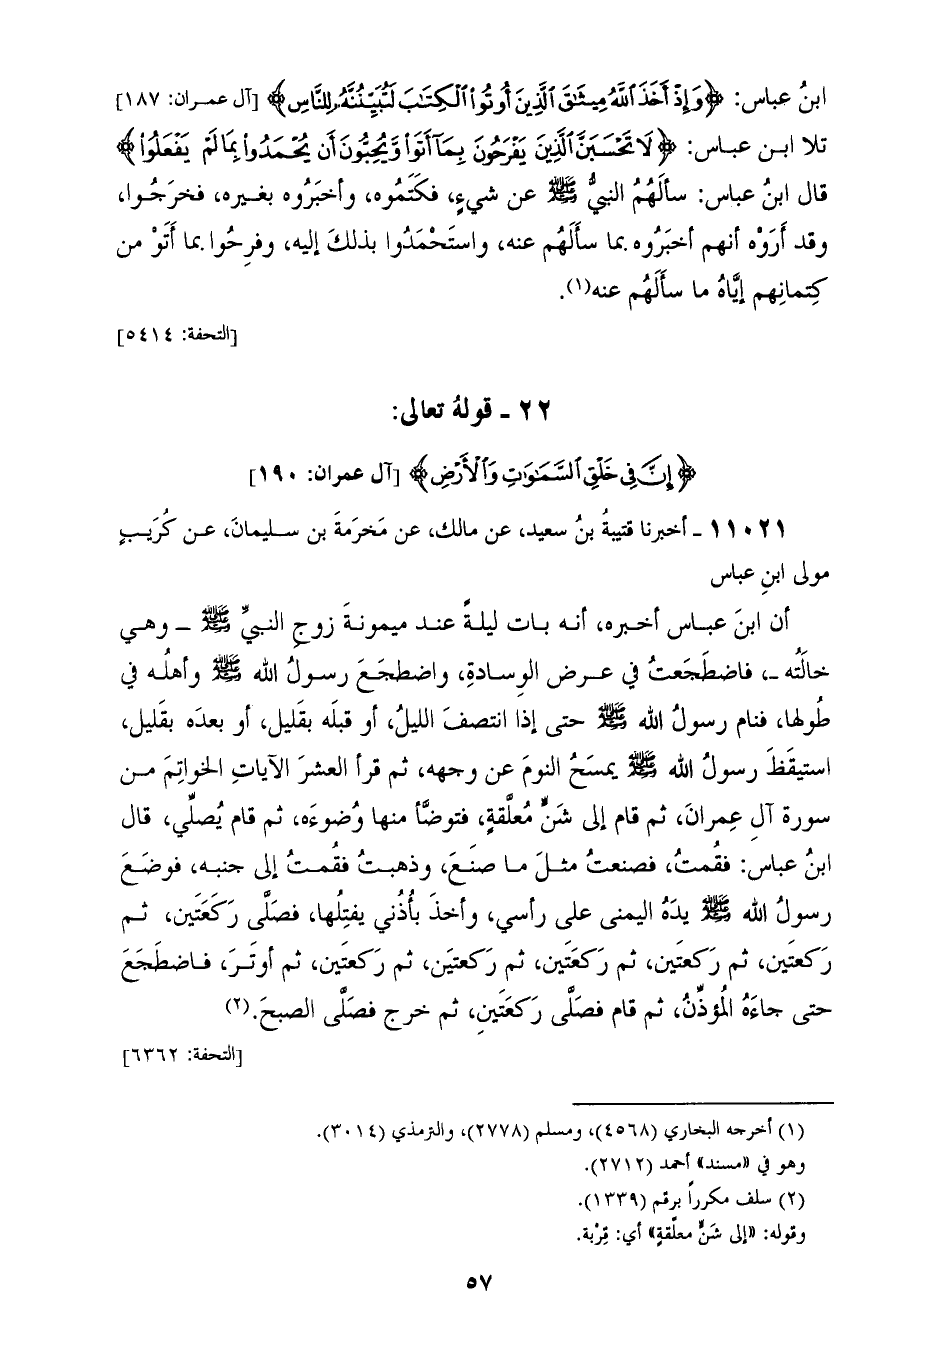 ابنُ عباس: ﴿وَإِذْ أَخَذَ ٱللَّهُ مِيثَٰقَ ٱلَّذِينَ أُوتُوا۟ ٱلْكِتَٰبَ لَتُبَيِّنُنَّهُۥ لِلنَّاسِ﴾ [آل عمران: ١٨٧]
تلا ابن عباس: ﴿لَا تَحْسَبَنَّ ٱلَّذِينَ يَفْرَحُونَ بِمَآ أَتَوا۟ وَّيُحِبُّونَ أَن يُحْمَدُوا۟ بِمَا لَمْ يَفْعَلُوا۟﴾
قال ابنُ عباس: سألَهُمُ النبيُّ ﷺ عن شيءٍ، فكَتَموه، وأخبَرُوه بغيره، فخرَجُوا،
وقد أَرَوْه أنهم أخبَرُوه بما سألَهُم عنه، واستَحْمَدُوا بذلكَ إليه، وفرِحُوا بما أَتَوْ من
كِتمانِهم إيَّاهُ ما سألَهُم عنه(١).
[التحفة: ٥٤١٤]
٢٢ ـ قولهُ تعالى:
﴿إِنَّ فِى خَلْقِ ٱلسَّمَٰوَٰتِ وَٱلْأَرْضِ﴾ [آل عمران: ١٩٠]
١١٠٢١ ـ أخبرنا قتيبةُ بنُ سعيد، عن مالك، عن مَخرَمةَ بن سليمانَ، عن كُرَيبٍ
مولى ابنِ عباس
أن ابنَ عباس أخبره، أنه بات ليلةً عند ميمونةَ زوجِ النبيِّ ﷺ ـ وهي
خالَتُه ـ، فاضطَجَعتُ في عرض الوِسادةِ، واضطجَعَ رسولُ الله ﷺ وأهلُه في
طُولها، فنام رسولُ الله ﷺ حتى إذا انتصفَ الليلُ، أو قبلَه بقَليل، أو بعدَه بقَليل،
استيقَظَ رسولُ الله ﷺ يمسَحُ النومَ عن وجهه، ثم قرأ العشرَ الآياتِ الخواتِمَ من
سورة آلِ عِمرانَ، ثم قام إلى شَنٍّ مُعلَّقةٍ، فتوضَّأ منها وُضوءَه، ثم قام يُصلِّي، قال
ابنُ عباس: فقُمتُ، فصنعتُ مثلَ ما صنَعَ، وذهبتُ فقُمتُ إلى جنبه، فوضَعَ
رسولُ الله ﷺ يدَهُ اليمنى على رأسي، وأخذَ بأُذُني يفتِلُها، فصَلَّى رَكعَتَين، ثم
رَكعتَين، ثم رَكعتَين، ثم رَكعَتَين، ثم رَكعتَين، ثم رَكعتَين، ثم أوتَرَ، فاضطَجَعَ
حتى جاءَهُ المُؤذِّنُ، ثم قام فصَلَّى رَكعَتَينِ، ثم خرج فصَلَّى الصبحَ.(٢)
[التحفة: ٦٣٦٢]
(١) أخرجه البخاري (٤٥٦٨)، ومسلم (٢٧٧٨)، والترمذي (٣٠١٤).
وهو في «مسند» أحمد (٢٧١٢).
(٢) سلف مكرراً برقم (١٣٣٩).
وقوله: «إلى شَنٍّ معلَّقةٍ» أي: قِرْبة.
٥٧